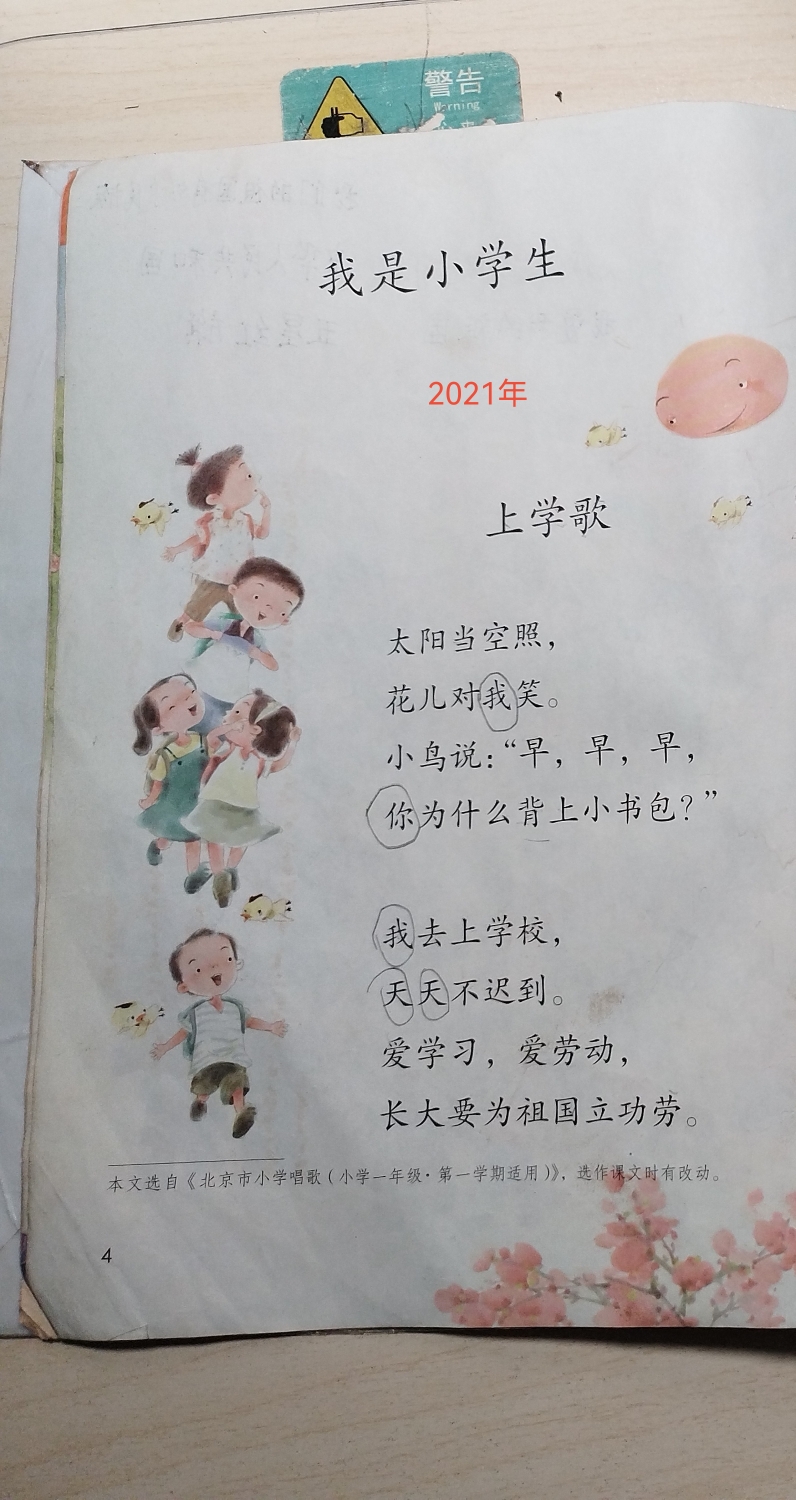 警告
Warning
我是小学生
2021年
上学歌
太阳当空照，
花儿对我笑。
小鸟说：“早，早，早，
你为什么背上小书包？”
我去上学校，
天天不迟到。
爱学习，爱劳动，
长大要为祖国立功劳。
本文选自《北京市小学唱歌（小学一年级·第一学期适用）》，选作课文时有改动。
4